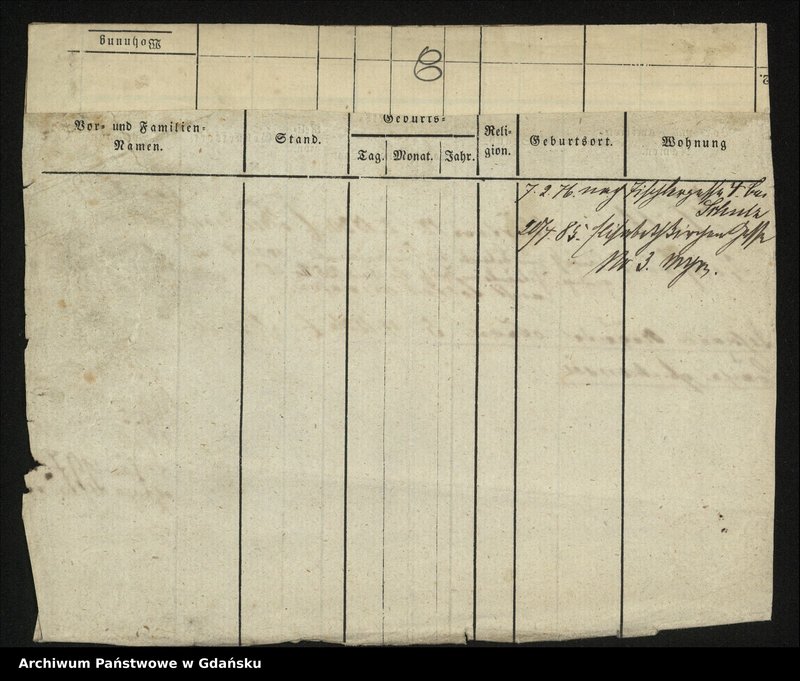 Wohnung
Vor- und Familien-
Namen.
Stand.
Geburts-
Tag.
Monat.
Jahr.
Reli-
gion.
Geburtsort.
Wohnung
7. 2. 76. nach Tischlergasse 4. bei
Schulz
29/4 85. Elisabethkirchen Gasse
No 3.
Archiwum Państwowe w Gdańsku